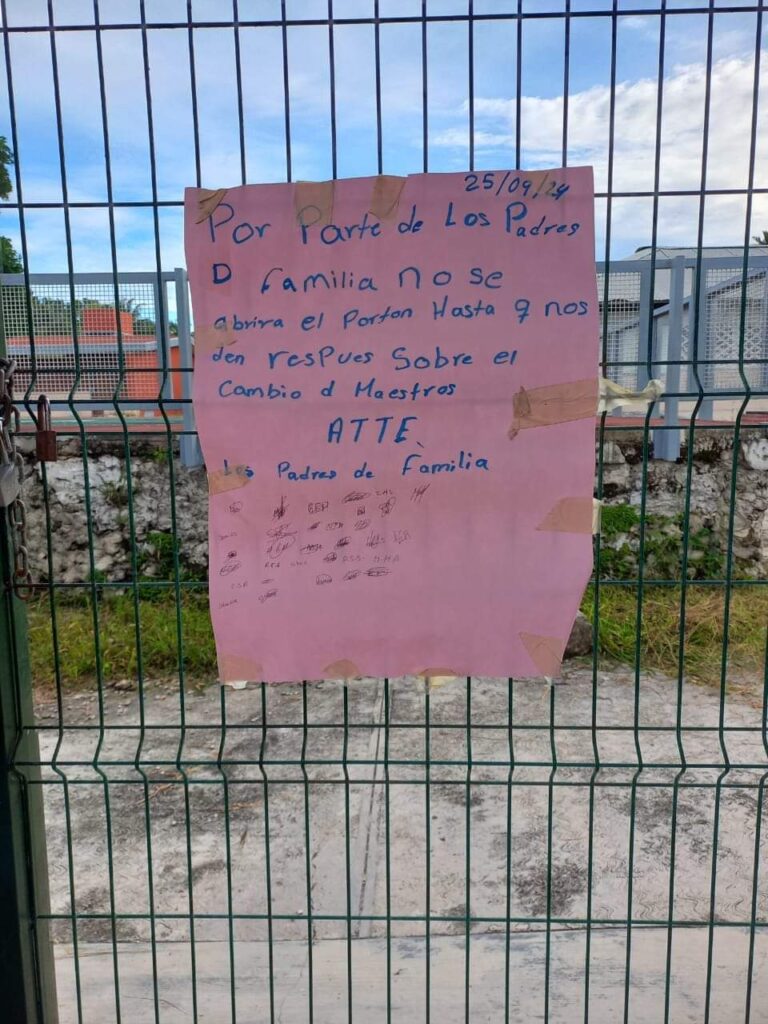 25/09/24
Por Parte de Los Padres
D familia no se
abrira el Porton Hasta q nos
den respues Sobre el
Cambio d Maestros
ATTE,
Los Padres de familia